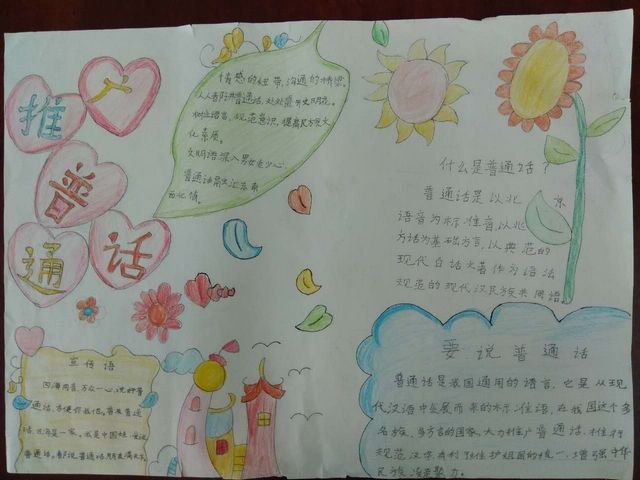 推广
普
通话
情感的纽带,沟通的桥梁。
人人都讲普通话,处处盛开文明花。
树立语言,规范意识,提高民族文
化素质。
文明语深入男女老少心
普通话常交汇东南
西北情。
什么是普通话?
普通话是以北京
语音为标准音,以北
方话为基础方言,以典范的
现代白话文著作为语法
规范的现代汉民族共同语。
宣传语
四海同音,万众一心,说好普
通话,方便你我他。普及普通
话,四海是一家。我是中国娃,爱说
普通话。都说普通话,朋友满天下
要说普通话
普通话是我国通用的语言,它是从现
代汉语中发展而来的标准语,在我国这个多
名族、多方言的国家,大力推广普通话、推行
规范汉字,有利于维护祖国的统一,增强中华
民族凝聚力。